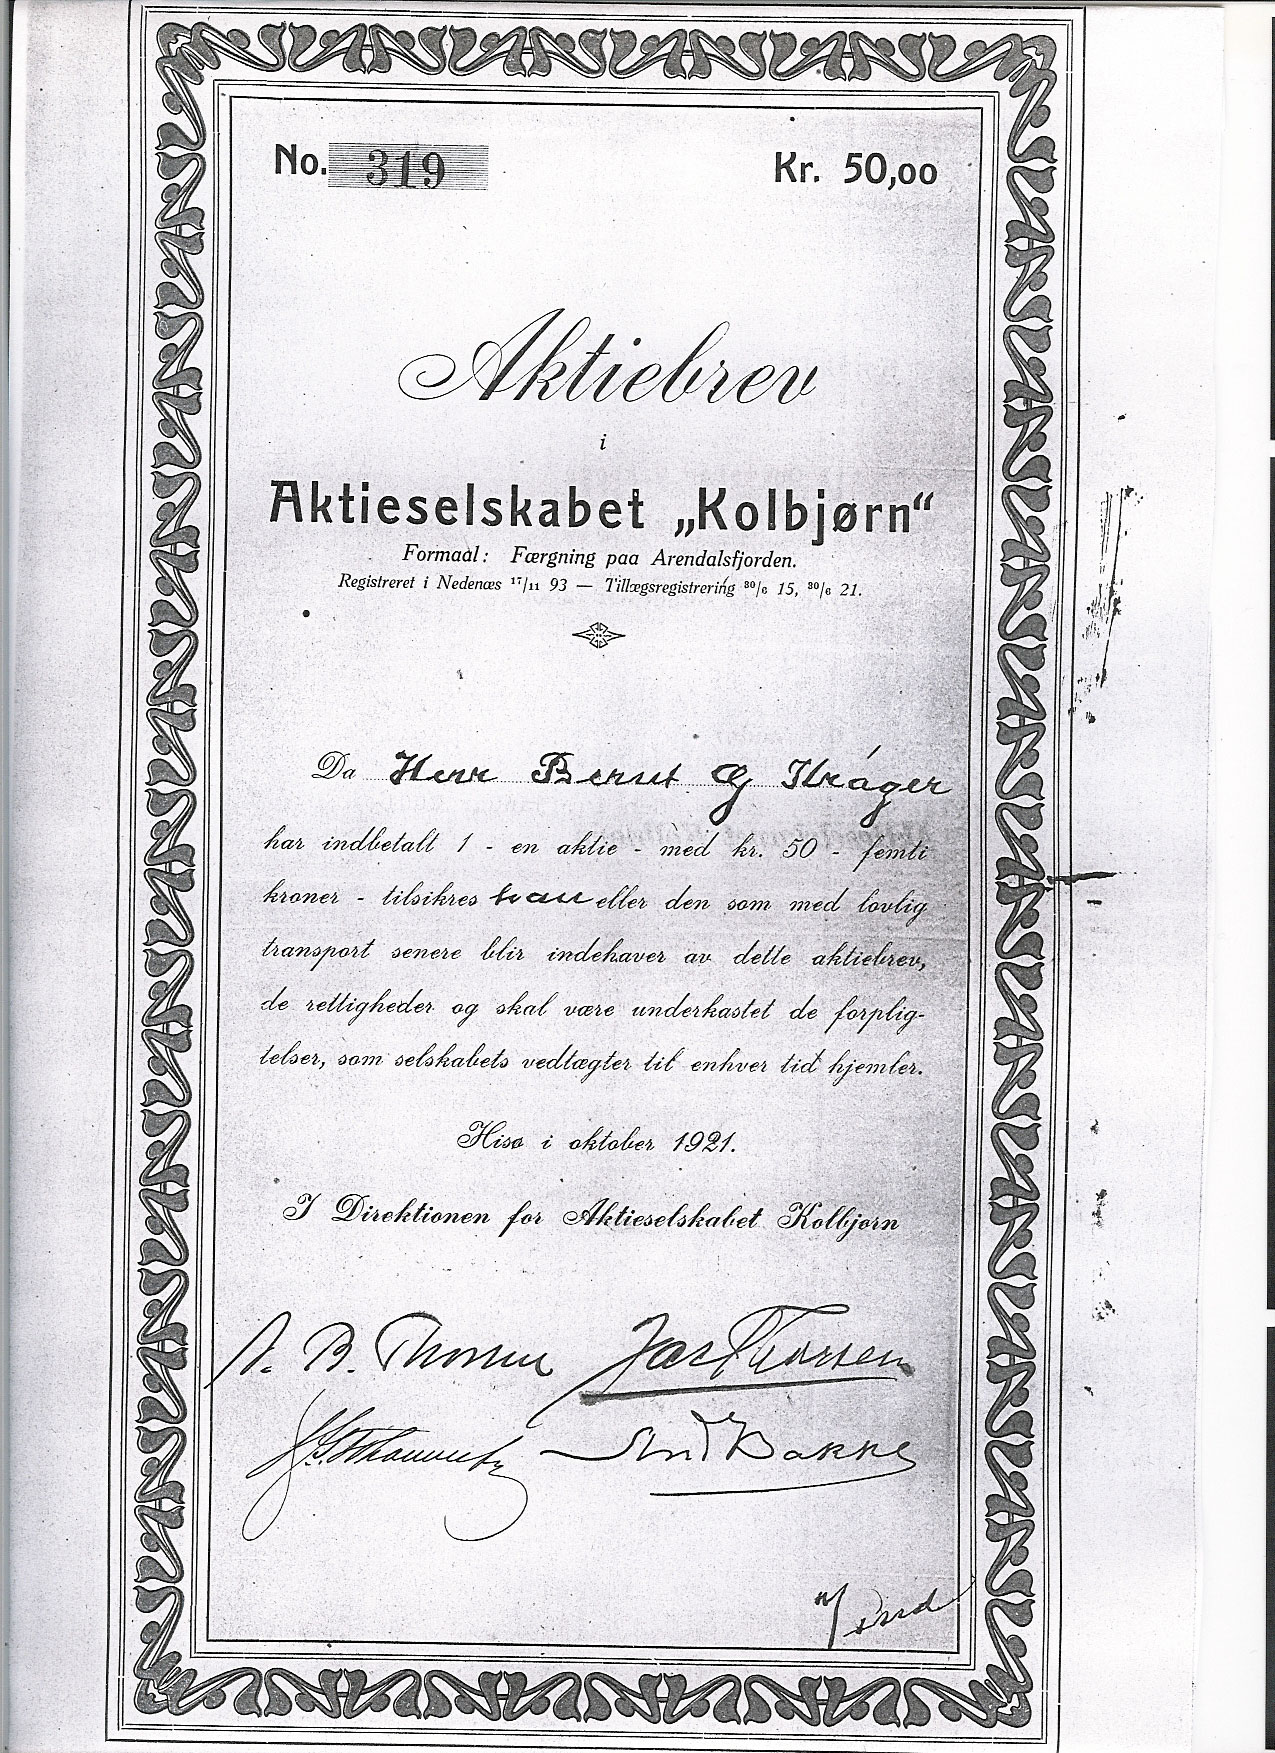 No. 319
Kr. 50,00
Aktiebrev
i
Aktieselskabet „Kolbjørn“
Formaal: Færgning paa Arendalsfjorden.
Registreret i Nedenæs 17/11 93 — Tillægsregistrering 30/6 15, 30/6 21.
Da Herr Bernt
har indbetalt 1 - en aktie - med kr. 50 - femti
kroner - tilsikres han eller den som med lovlig
transport senere blir indehaver av dette aktiebrev,
de rettigheder og skal være underkastet de forplig-
telser, som selskabets vedtægter til enhver tid hjemler.
Hisø i oktober 1921.
I Direktionen for Aktieselskabet Kolbjørn
Bakke